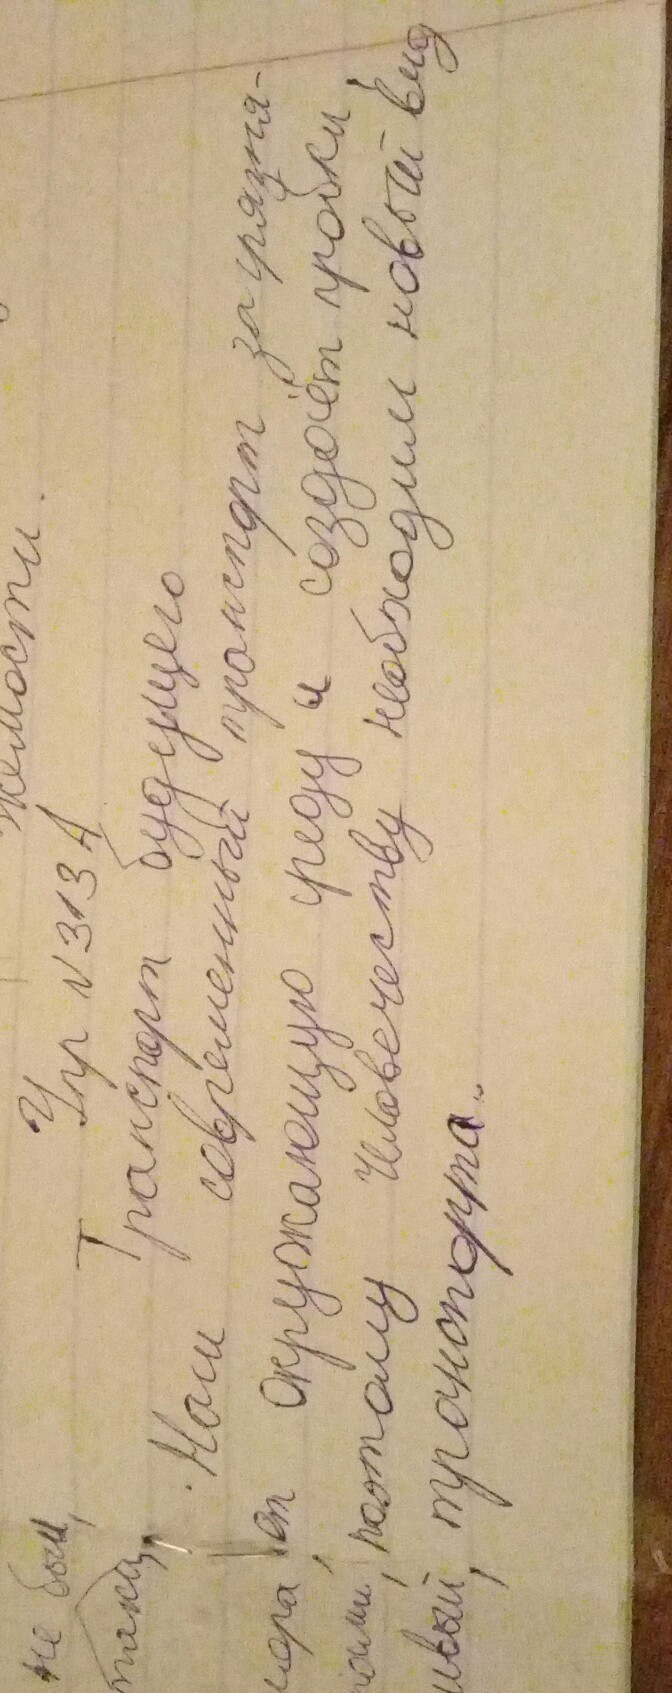 жемости.
Упр №313 А
Транспорт будущего
Наш современный транспорт загрязня-
ет окружающую среду и создаёт пробки,
поэтому человечеству необходим новый вид
транспорта.
не был,